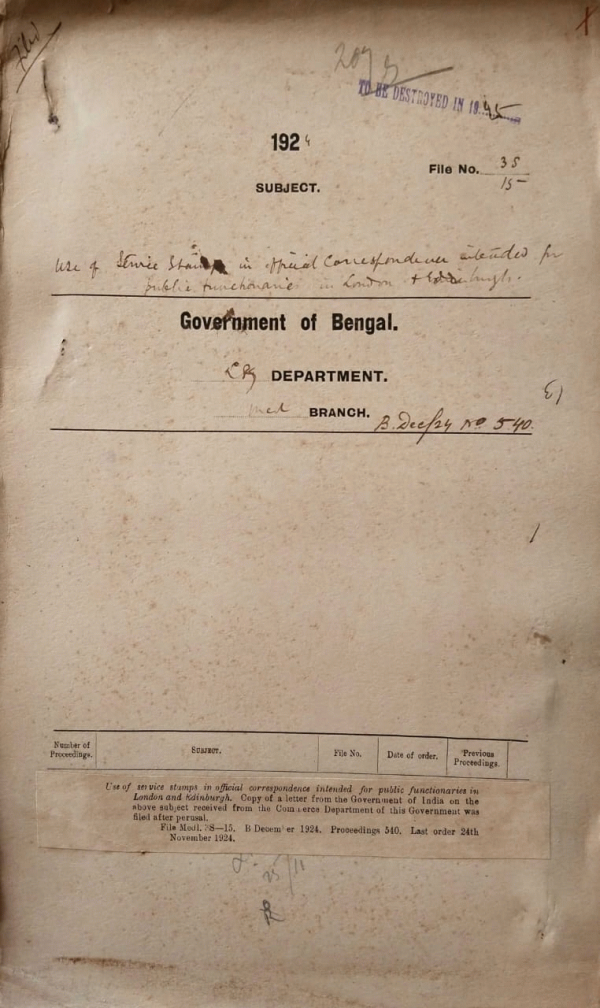 Filed
TO BE DESTROYED IN 1945
1924
File No. 35
15
SUBJECT.
Use of Service Stamps in official Correspondence intended for
public functionaries in London & Edinburgh.
Government of Bengal.
DEPARTMENT.
Med BRANCH.
B. Dec/24 No 540.
Number of
Proceedings.
SUBJECT.
File No.
Date of order.
Previous
Proceedings.
Use of service stamps in official correspondence intended for public functionaries in
London and Edinburgh. Copy of a letter from the Government of India on the
above subject received from the Commerce Department of this Government was
filed after perusal.
File Medl. 38—15. B December 1924. Proceedings 540. Last order 24th
November 1924.
25/11